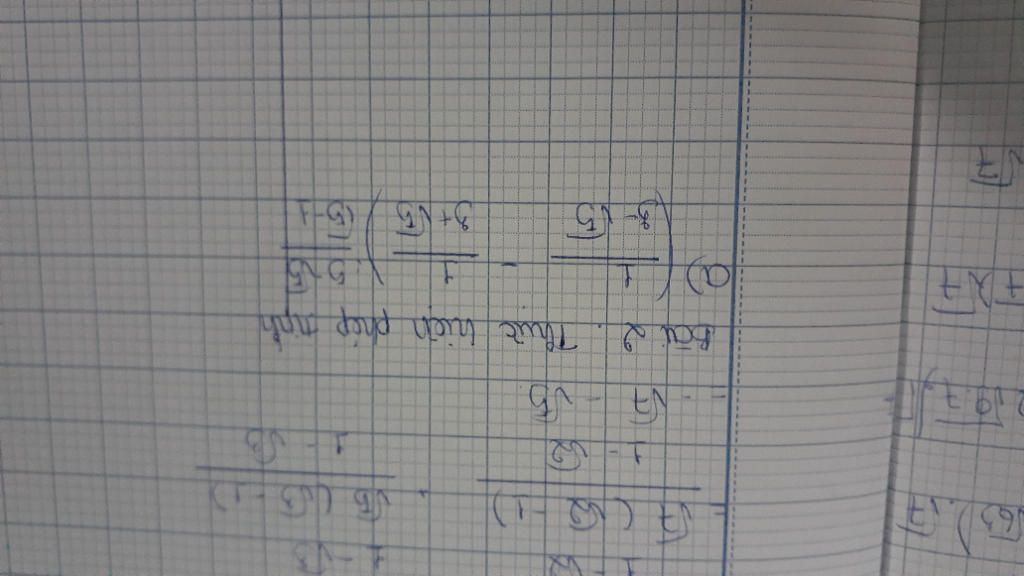 1 - √2 1 - √3
= √7 (√2 - 1) / 1 - √2 + √5 (√3 - 1) / 1 - √3
= - √7 - √5
Bài 2 : Thực hiện phép tính
a) ( 1 / 3 - √5 - 1 / 3 + √5 ) : 5 - √5 / √5 - 1
√63) . √7
√7